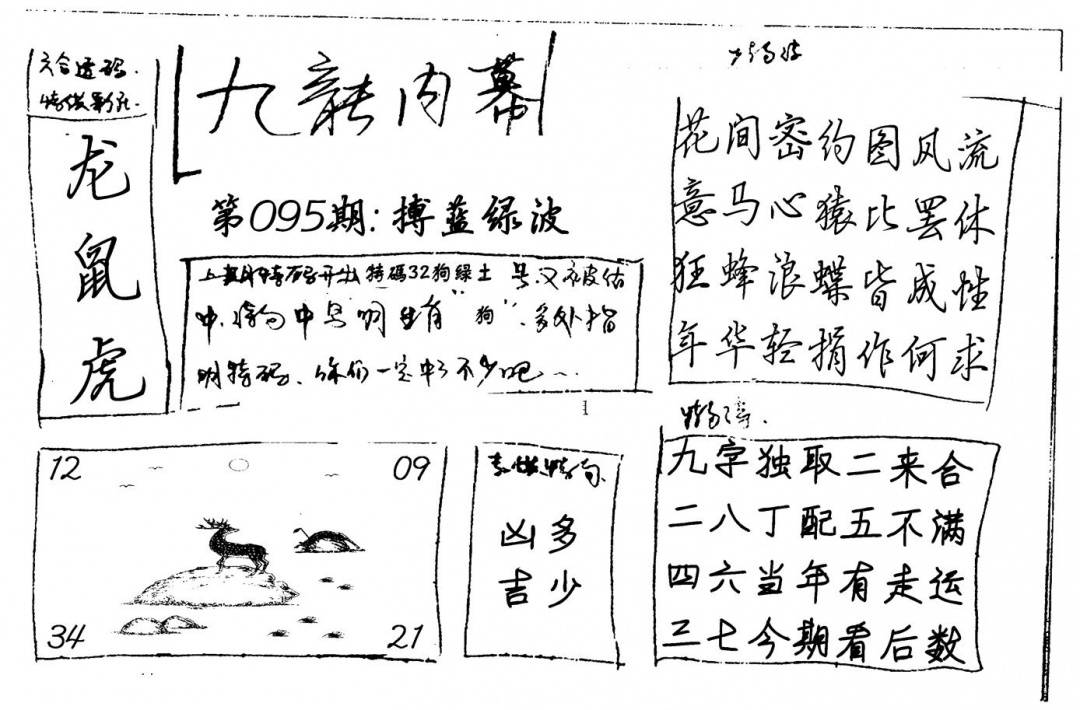 六合透码
龙
鼠
虎
九龍内幕
第095期:搏蓝绿波
上期特码开出特碼32狗綠土号又被估
中,特句中写明生肖“狗”,多处指
明特码、你们一定中了不少吧~
花间密约图风流
意马心猿比罢休
狂蜂浪蝶皆成性
年华轻捐作何求
九字独取二来合
二八丁配五不满
四六当年有走运
三七今期看后数
12
09
34
21
凶多
吉少